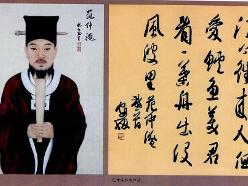 江上往来人但
愛鱸魚美君
看一葉舟出没
風波里 范仲淹
范仲淹